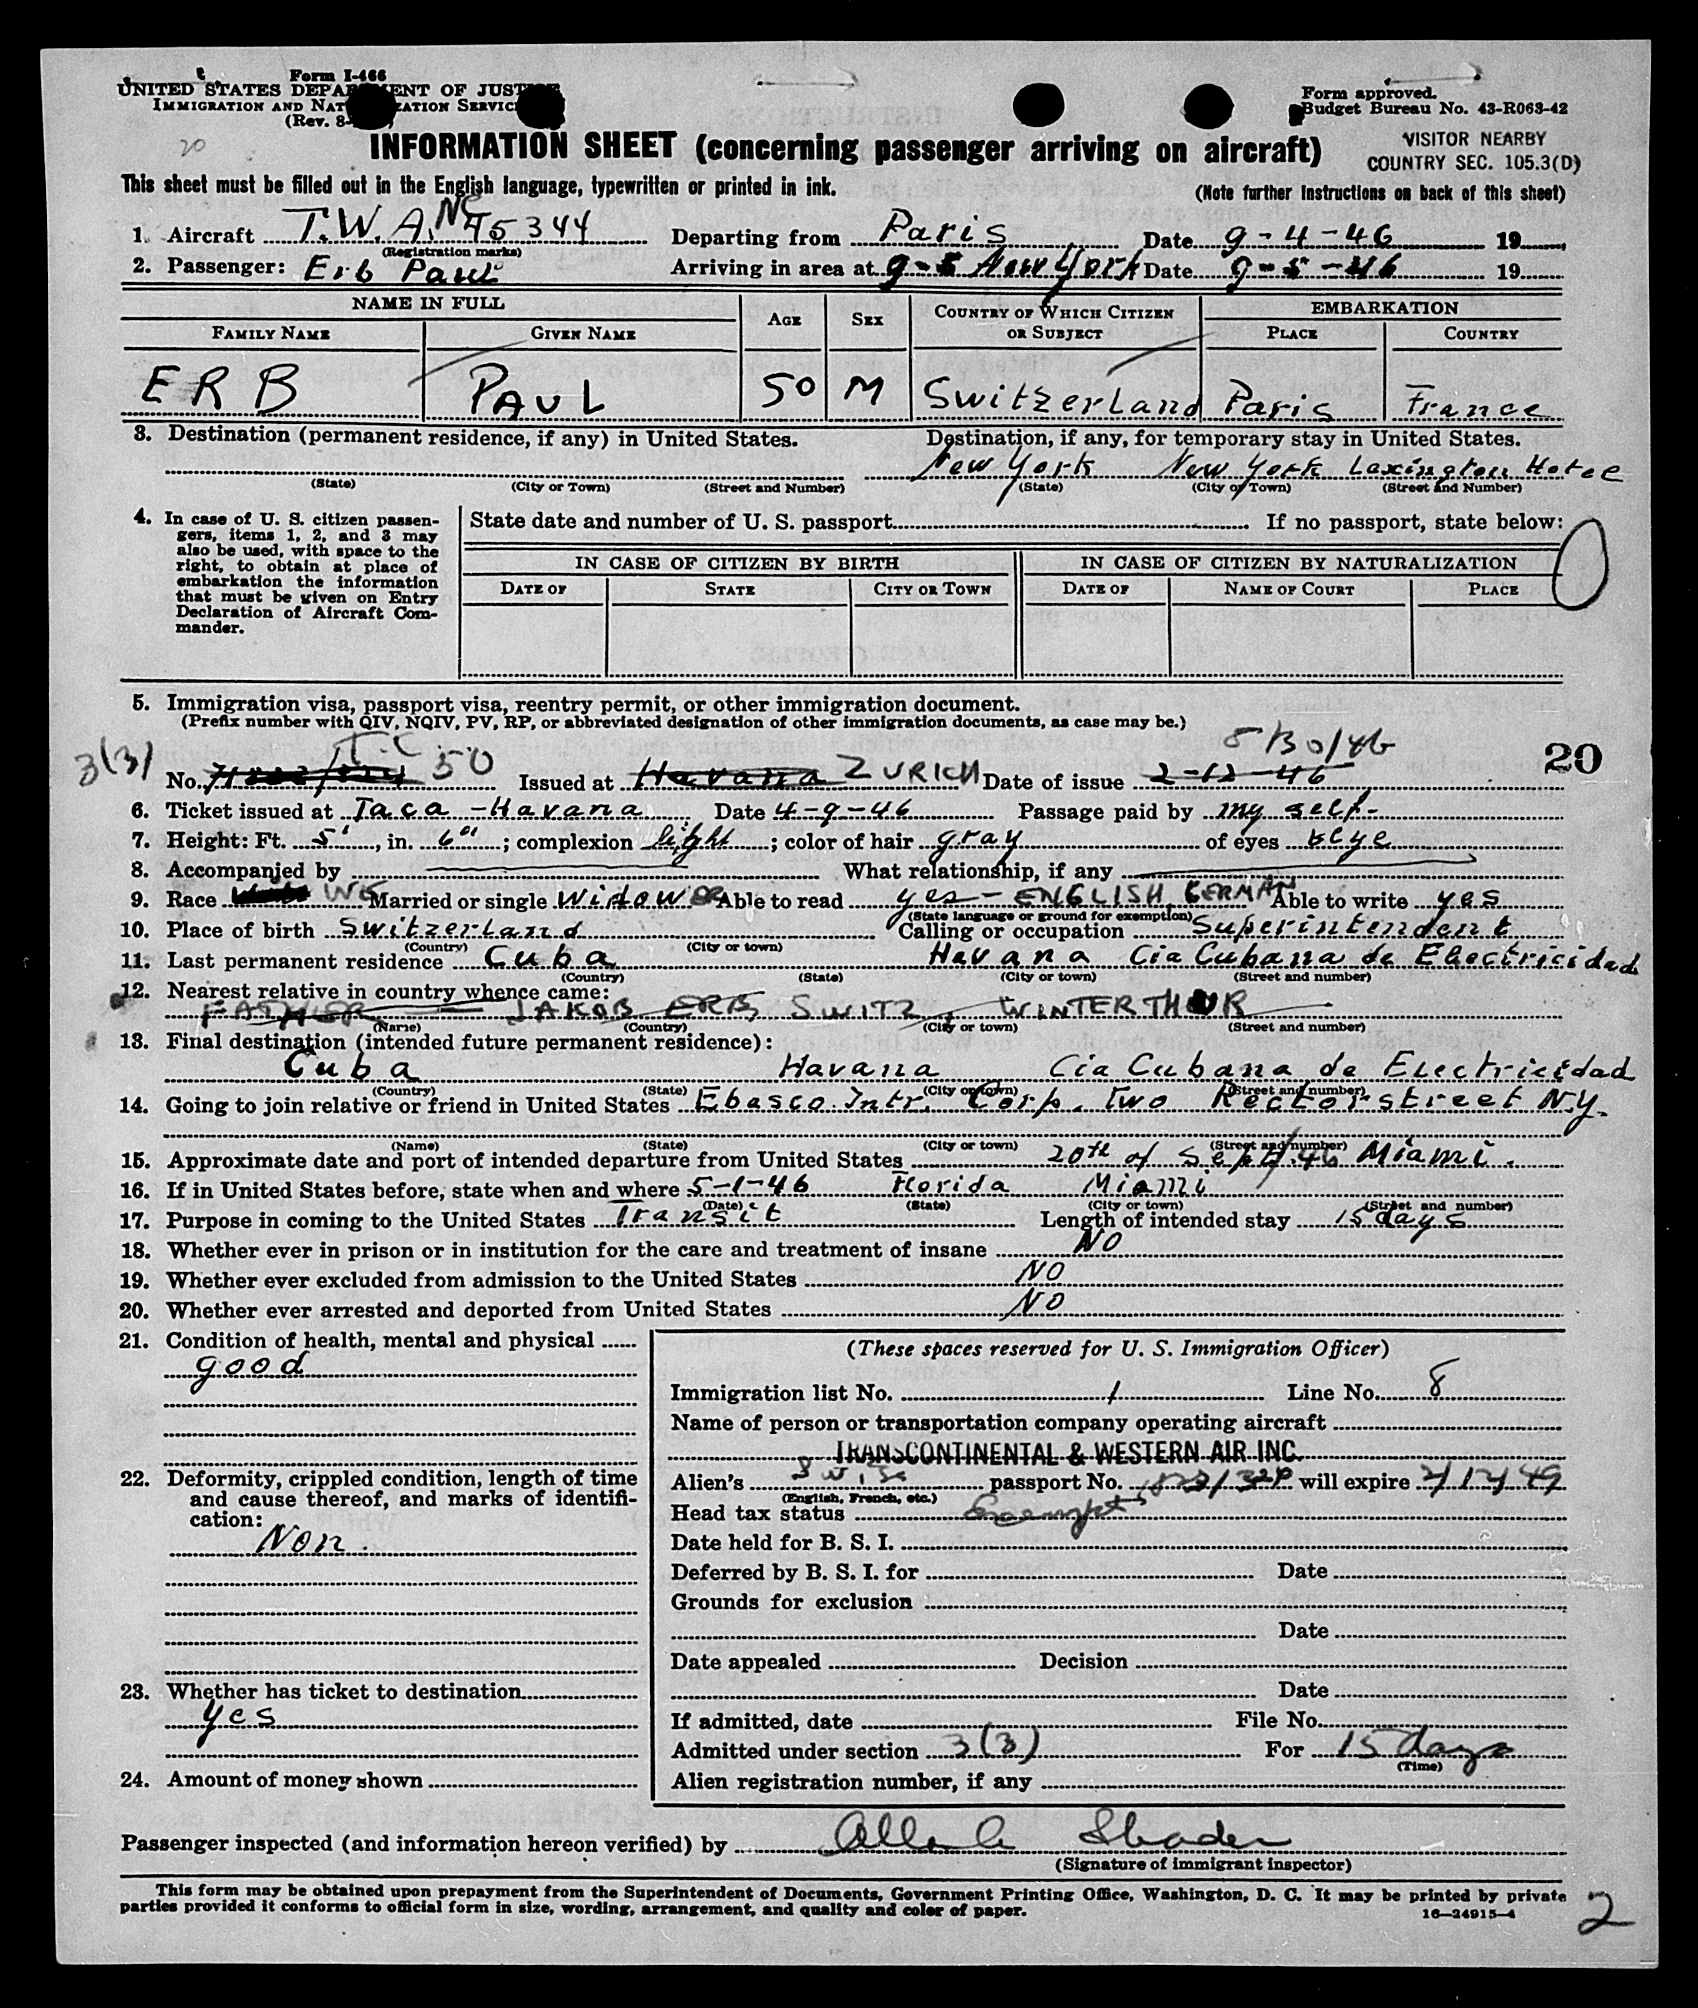 Form I-466
UNITED STATES DEPARTMENT OF JUSTICE
IMMIGRATION AND NATURALIZATION SERVICE
(Rev. 8-
Form approved.
Budget Bureau No. 43-R063-42
20
INFORMATION SHEET (concerning passenger arriving on aircraft)
VISITOR NEARBY
COUNTRY SEC. 105.3(D)
This sheet must be filled out in the English language, typewritten or printed in ink.
(Note further instructions on back of this sheet)
1. Aircraft T.W.A. NC 45344 Departing from Paris Date 9-4-46 19
(Registration marks)
2. Passenger: Erb Paul Arriving in area at 9-5 New York Date 9-5-46 19
NAME IN FULL AGE SEX COUNTRY OF WHICH CITIZEN OR SUBJECT EMBARKATION
FAMILY NAME GIVEN NAME PLACE COUNTRY
ERB PAUL 50 M Switzerland Paris France
3. Destination (permanent residence, if any) in United States. Destination, if any, for temporary stay in United States.
New York New York Laxington Hotel
(State) (City or Town) (Street and Number) (State) (City or Town) (Street and Number)
4. In case of U. S. citizen passen-
gers, items 1, 2, and 3 may
also be used, with space to the
right, to obtain at place of
embarkation the information
that must be given on Entry
Declaration of Aircraft Com-
mander.
State date and number of U. S. passport If no passport, state below:
IN CASE OF CITIZEN BY BIRTH IN CASE OF CITIZEN BY NATURALIZATION
DATE OF STATE CITY OR TOWN DATE OF NAME OF COURT PLACE
5. Immigration visa, passport visa, reentry permit, or other immigration document.
(Prefix number with QIV, NQIV, PV, RP, or abbreviated designation of other immigration documents, as case may be.)
3(3) T.C. 8/30/46 20
No. 50 Issued at Havana ZURICH Date of issue 2-12-46
6. Ticket issued at Taca - Havana Date 4-9-46 Passage paid by my self-
7. Height: Ft. 5', in. 6"; complexion light; color of hair gray of eyes blye
8. Accompanied by What relationship, if any
9. Race Married or single Widower Able to read yes - ENGLISH, GERMAN Able to write yes
(State language or ground for exemption)
10. Place of birth Switzerland Calling or occupation Superintendent
(Country) (City or town)
11. Last permanent residence Cuba Havana Cia Cubana de Electricidad
(Country) (State) (City or town) (Street and number)
12. Nearest relative in country whence came:
FATHER - JAKOB ERB, SWITZ, WINTERTHUR
(Name) (Country) (City or town) (Street and number)
13. Final destination (intended future permanent residence):
Cuba Havana Cia Cubana de Electricidad
(Country) (State) (City or town) (Street and number)
14. Going to join relative or friend in United States Ebasco Intr. Corp. Two Rector street N.Y.
(Name) (State) (City or town) (Street and number)
15. Approximate date and port of intended departure from United States 20th of Sept. 46 Miami.
16. If in United States before, state when and where 5-1-46 Florida Miami
(Date) (State) (City or town) (Street and number)
17. Purpose in coming to the United States Transit Length of intended stay 15 days
18. Whether ever in prison or in institution for the care and treatment of insane NO
19. Whether ever excluded from admission to the United States NO
20. Whether ever arrested and deported from United States NO
21. Condition of health, mental and physical
good
22. Deformity, crippled condition, length of time
and cause thereof, and marks of identifi-
cation:
Non.
23. Whether has ticket to destination
yes
24. Amount of money shown
(These spaces reserved for U. S. Immigration Officer)
Immigration list No. 1 Line No. 8
Name of person or transportation company operating aircraft
TRANSCONTINENTAL & WESTERN AIR INC.
Alien's Swiss passport No. will expire 2/12/49
(English, French, etc.)
Head tax status Exempt
Date held for B. S. I.
Deferred by B. S. I. for Date
Grounds for exclusion
Date
Date appealed Decision
Date
If admitted, date File No.
Admitted under section 3(3) For 15 days
(Time)
Alien registration number, if any
Passenger inspected (and information hereon verified) by
(Signature of immigrant inspector)
This form may be obtained upon prepayment from the Superintendent of Documents, Government Printing Office, Washington, D. C. It may be printed by private
parties provided it conforms to official form in size, wording, arrangement, and quality and color of paper.
16-24915-4
2